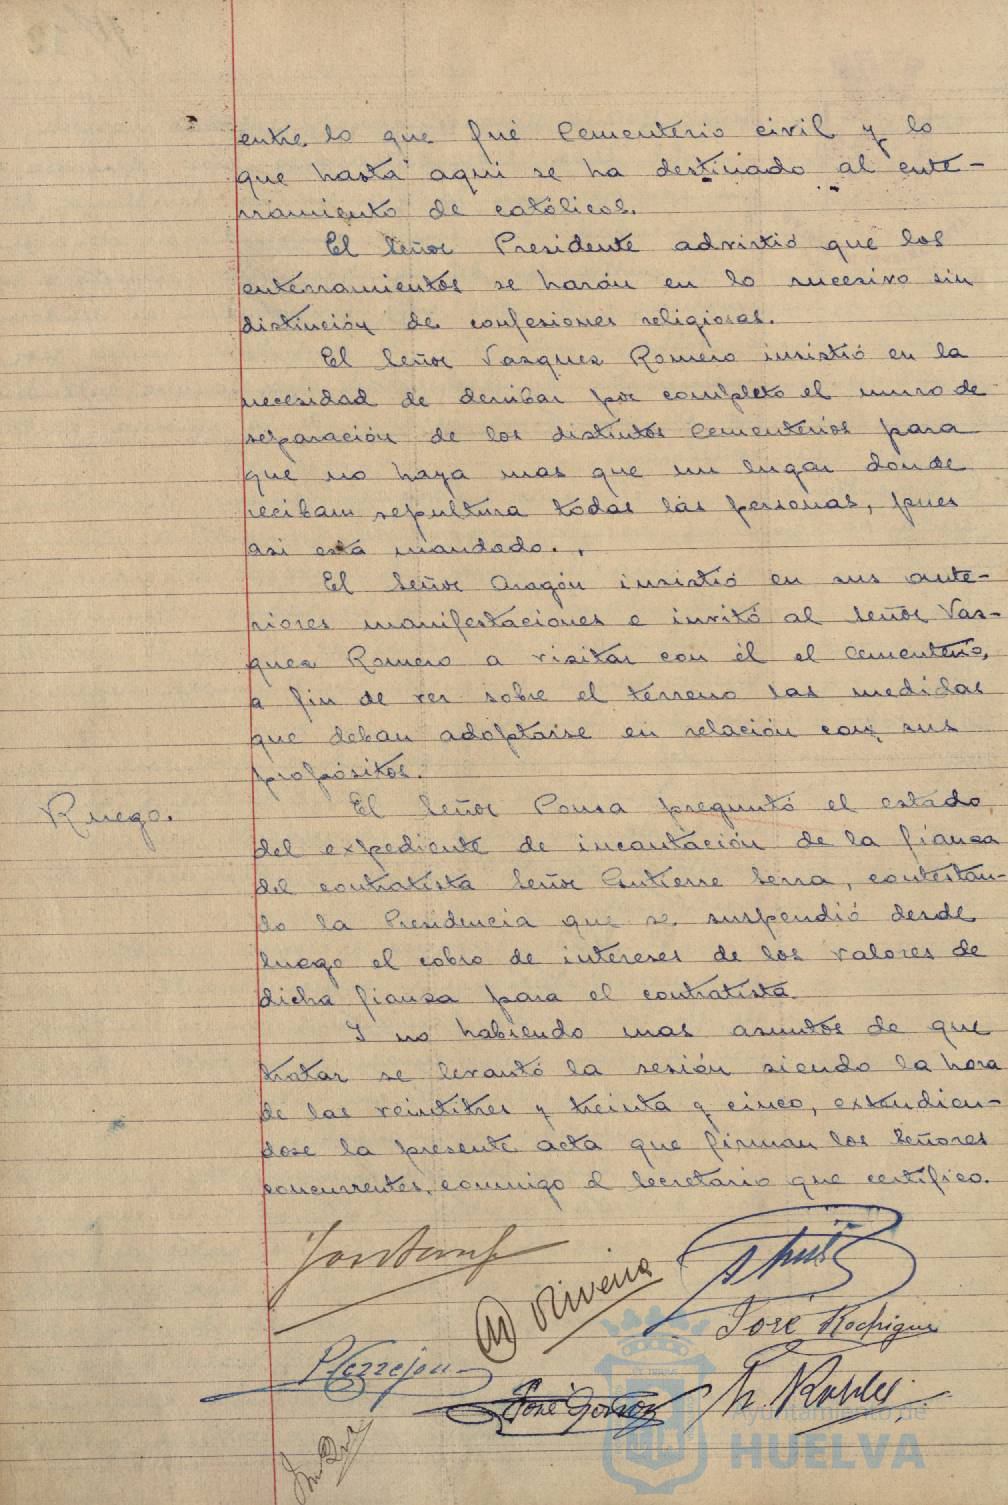 entre lo que fué Cementerio civil y lo
que hasta aqui se ha destinado al ente-
rramiento de católicos.
El Señor Presidente advirtió que los
enterramientos se harán en lo sucesivo sin
distinción de confesiones religiosas.
El Señor Vazquez Romero insistió en la
necesidad de derribar por completo el muro de
separación de los distintos Cementerios para
que no haya mas que un lugar donde
reciban sepultura todas las personas, pues
asi está mandado.
El Señor Aragón insistió en sus ante-
riores manifestaciones e invitó al Señor Vaz-
quez Romero a visitar con él el Cementerio,
a fin de ver sobre el terreno las medidas
que deban adoptarse en relación con sus
propósitos.
Ruego. El Señor Ponsa preguntó el estado
del expediente de incautación de la fianza
del contratista Señor Gutierre Serra, contestan-
do la Presidencia que se suspendió desde
luego el cobro de intereses de los valores de
dicha fianza para el contratista
Y no habiendo mas asuntos de que
tratar se levantó la sesión siendo la hora
de las veintitres y treinta y cinco, extendien-
dose la presente acta que firman los Señores
concurrentes, conmigo el Secretario que certifico.
Rivera
José Rodrigue
P Cerrejon
José
R. Robles
Ayuntamiento de
HUELVA